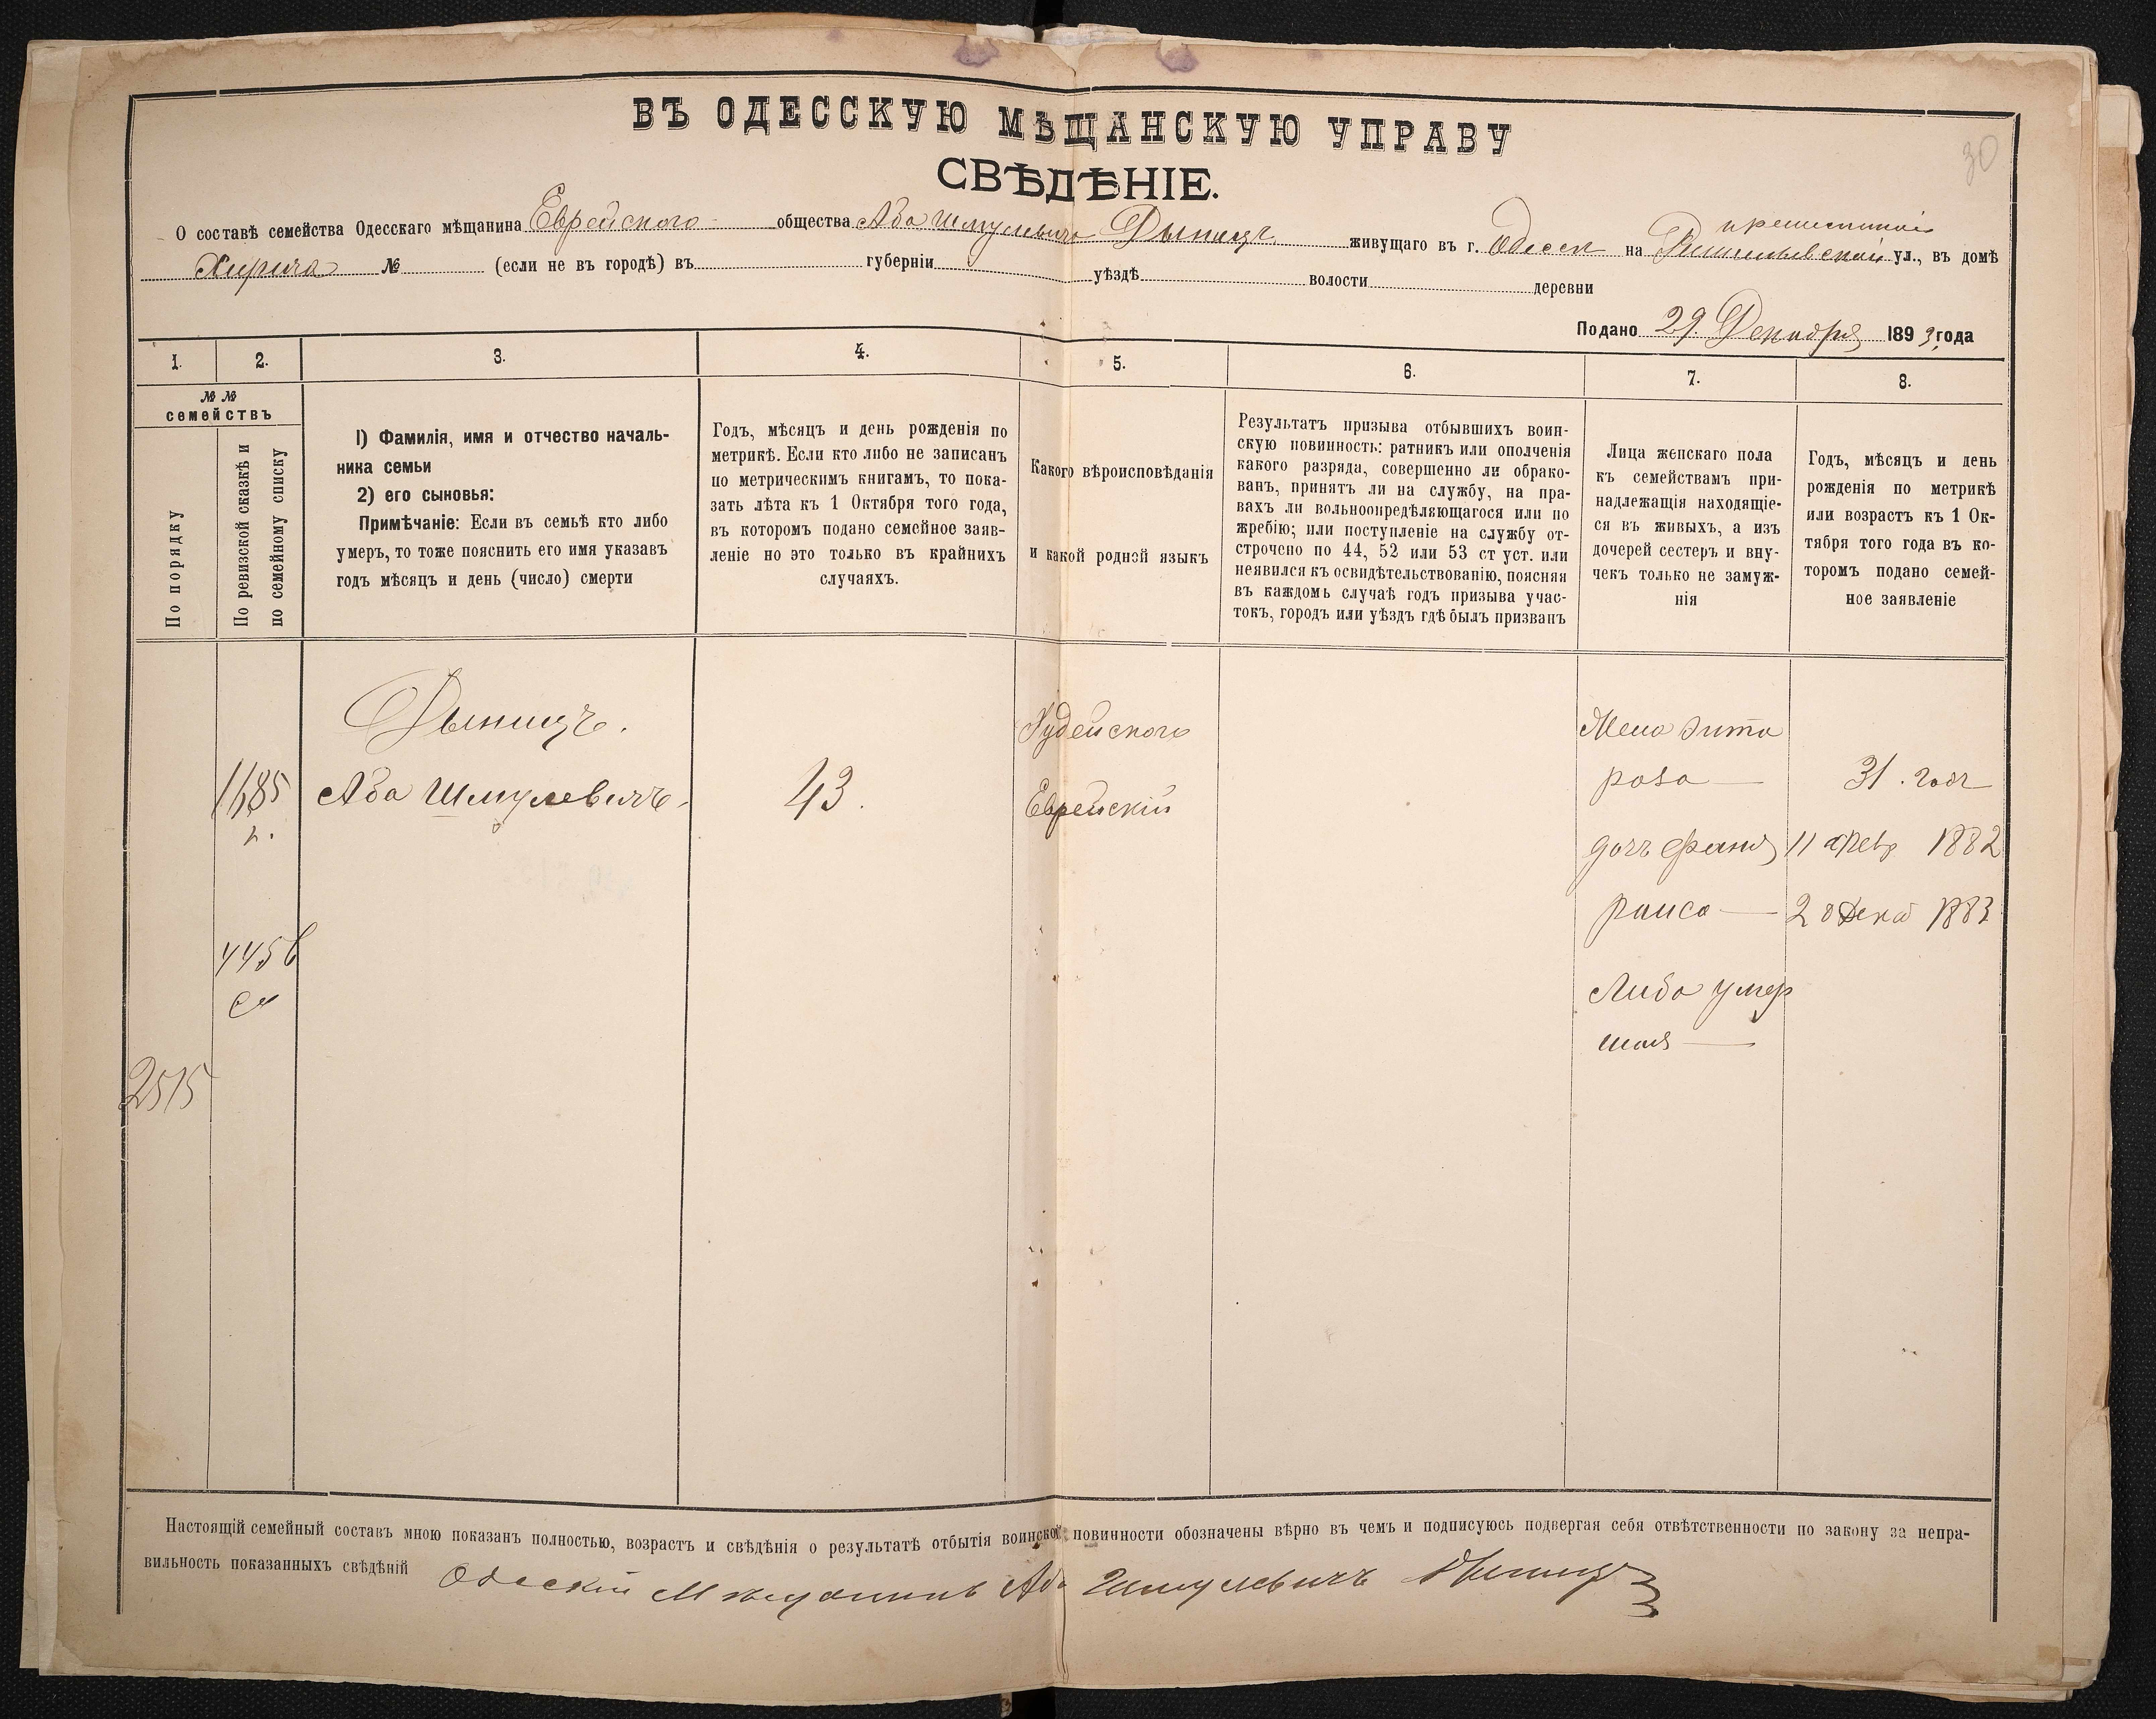 ВЪ ОДЕССКУЮ МѢЩАНСКУЮ УПРАВУ
30
СВѢДѢНІЕ.
О составѣ семейства Одесскаго мѣщанина Еврейского общества Аба Шмулевича Дыницъ живущаго въ г. Одессѣ на Ришельевской ул., въ домѣ
№ (если не въ городѣ) въ губерніи уѣздѣ волости деревни
Подано 29. Декабря 1893 года
1. 2. 3. 4. 5. 6. 7. 8.
№ №
семействъ
По порядку
По ревизской сказкѣ и
по семейному списку
1) Фамилія, имя и отчество началь-
ника семьи
2) его сыновья:
Примѣчаніе: Если въ семьѣ кто либо
умеръ, то тоже пояснить его имя указавъ
годъ мѣсяцъ и день (число) смерти
Годъ, мѣсяцъ и день рожденія по
метрикѣ. Если кто либо не записанъ
по метрическимъ книгамъ, то пока-
зать лѣта къ 1 Октября того года,
въ которомъ подано семейное заяв-
леніе но это только въ крайнихъ
случаяхъ.
Какого вѣроисповѣданія
и какой родной языкъ
Результатъ призыва отбывшихъ воин-
скую повинность: ратникъ или ополченія
какого разряда, совершенно ли обрако-
ванъ, принятъ ли на службу, на пра-
вахъ ли вольноопредѣляющагося или по
жребію; или поступленіе на службу от-
строчено по 44, 52 или 53 ст уст. или
неявился къ освидѣтельствованію, поясняя
въ каждомъ случаѣ годъ призыва учас-
токъ, городъ или уѣздъ гдѣ былъ призванъ
Лица женскаго пола
къ семействамъ при-
надлежащія находящіе-
ся въ живыхъ, а изъ
дочерей сестеръ и вну-
чекъ только не замуж-
нія
Годъ, мѣсяцъ и день
рожденія по метрикѣ
или возрастъ къ 1 Ок-
тября того года въ ко-
торомъ подано семей-
ное заявленіе
1185
445б
2515
Дыницъ.
Аба Шмулевичъ.
43.
Іудейского
Еврейскій
Жена Зита
роза — 31. годъ
дочь фаня 11 февр 1882
раиса — 28 Дека 1883
Либа умер
шая —
Настоящій семейный составъ мною показанъ полностью, возрастъ и свѣдѣнія о результатѣ отбытія воинской повинности обозначены вѣрно въ чемъ и подписуюсь подвергая себя отвѣтственности по закону за непра-
вильность показанныхъ свѣдѣній Одескій Мѣщанинъ Аба Шмулевичъ Дыницъ